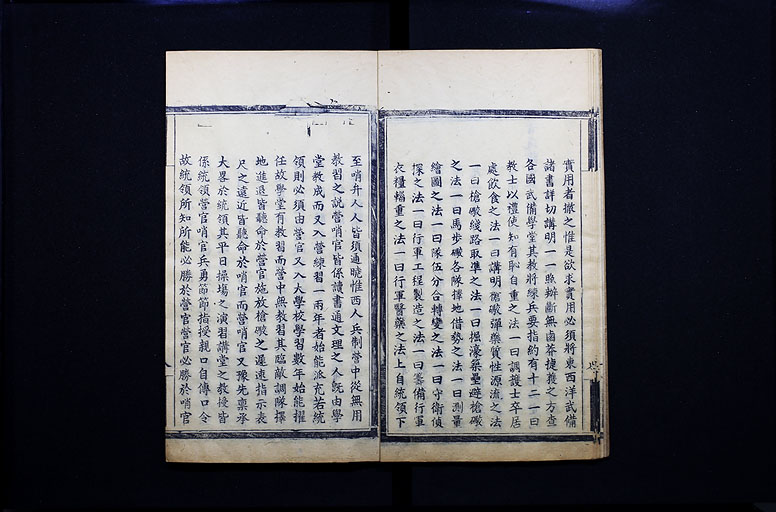 實用者撤之惟是欲求實用必須將東西洋武備
諸書詳切講明一一照辦斷無鹵莽捷獲之方查
各國武備學堂其教將練兵要指約有十二一曰
教士以禮使知有恥自重之法一曰調護士卒居
處飲食之法一曰講明槍礮彈藥質性源流之法
一曰槍礮綫路取準之法一曰掘濠築壘避槍礮
之法一曰馬步礮各隊擇地借勢之法一曰測量
繪圖之法一曰隊伍分合轉變之法一曰守衛偵
探之法一曰行軍工程製造之法一曰籌備行軍
衣糧輜重之法一曰行軍醫藥之法上自統領下
至哨弁人人皆須通曉惟西人兵制營中從無用
教習之說營哨官皆係讀書通文理之人既由學
堂教成而又入營練習一兩年者始能派充若統
領則必須由營官又入大學校學習數年始能擢
任故學堂有教習而營中無教習其臨敵調隊擇
地進退皆聽命於營官施放槍礮之遲速指示表
尺之遠近皆聽命於哨官而營哨官又豫先稟承
大畧於統領其平日操塲之演習講堂之教授皆
係統領營官哨官兵勇節節指授親口自傳口令
故統領所知所能必勝於營官營官必勝於哨官